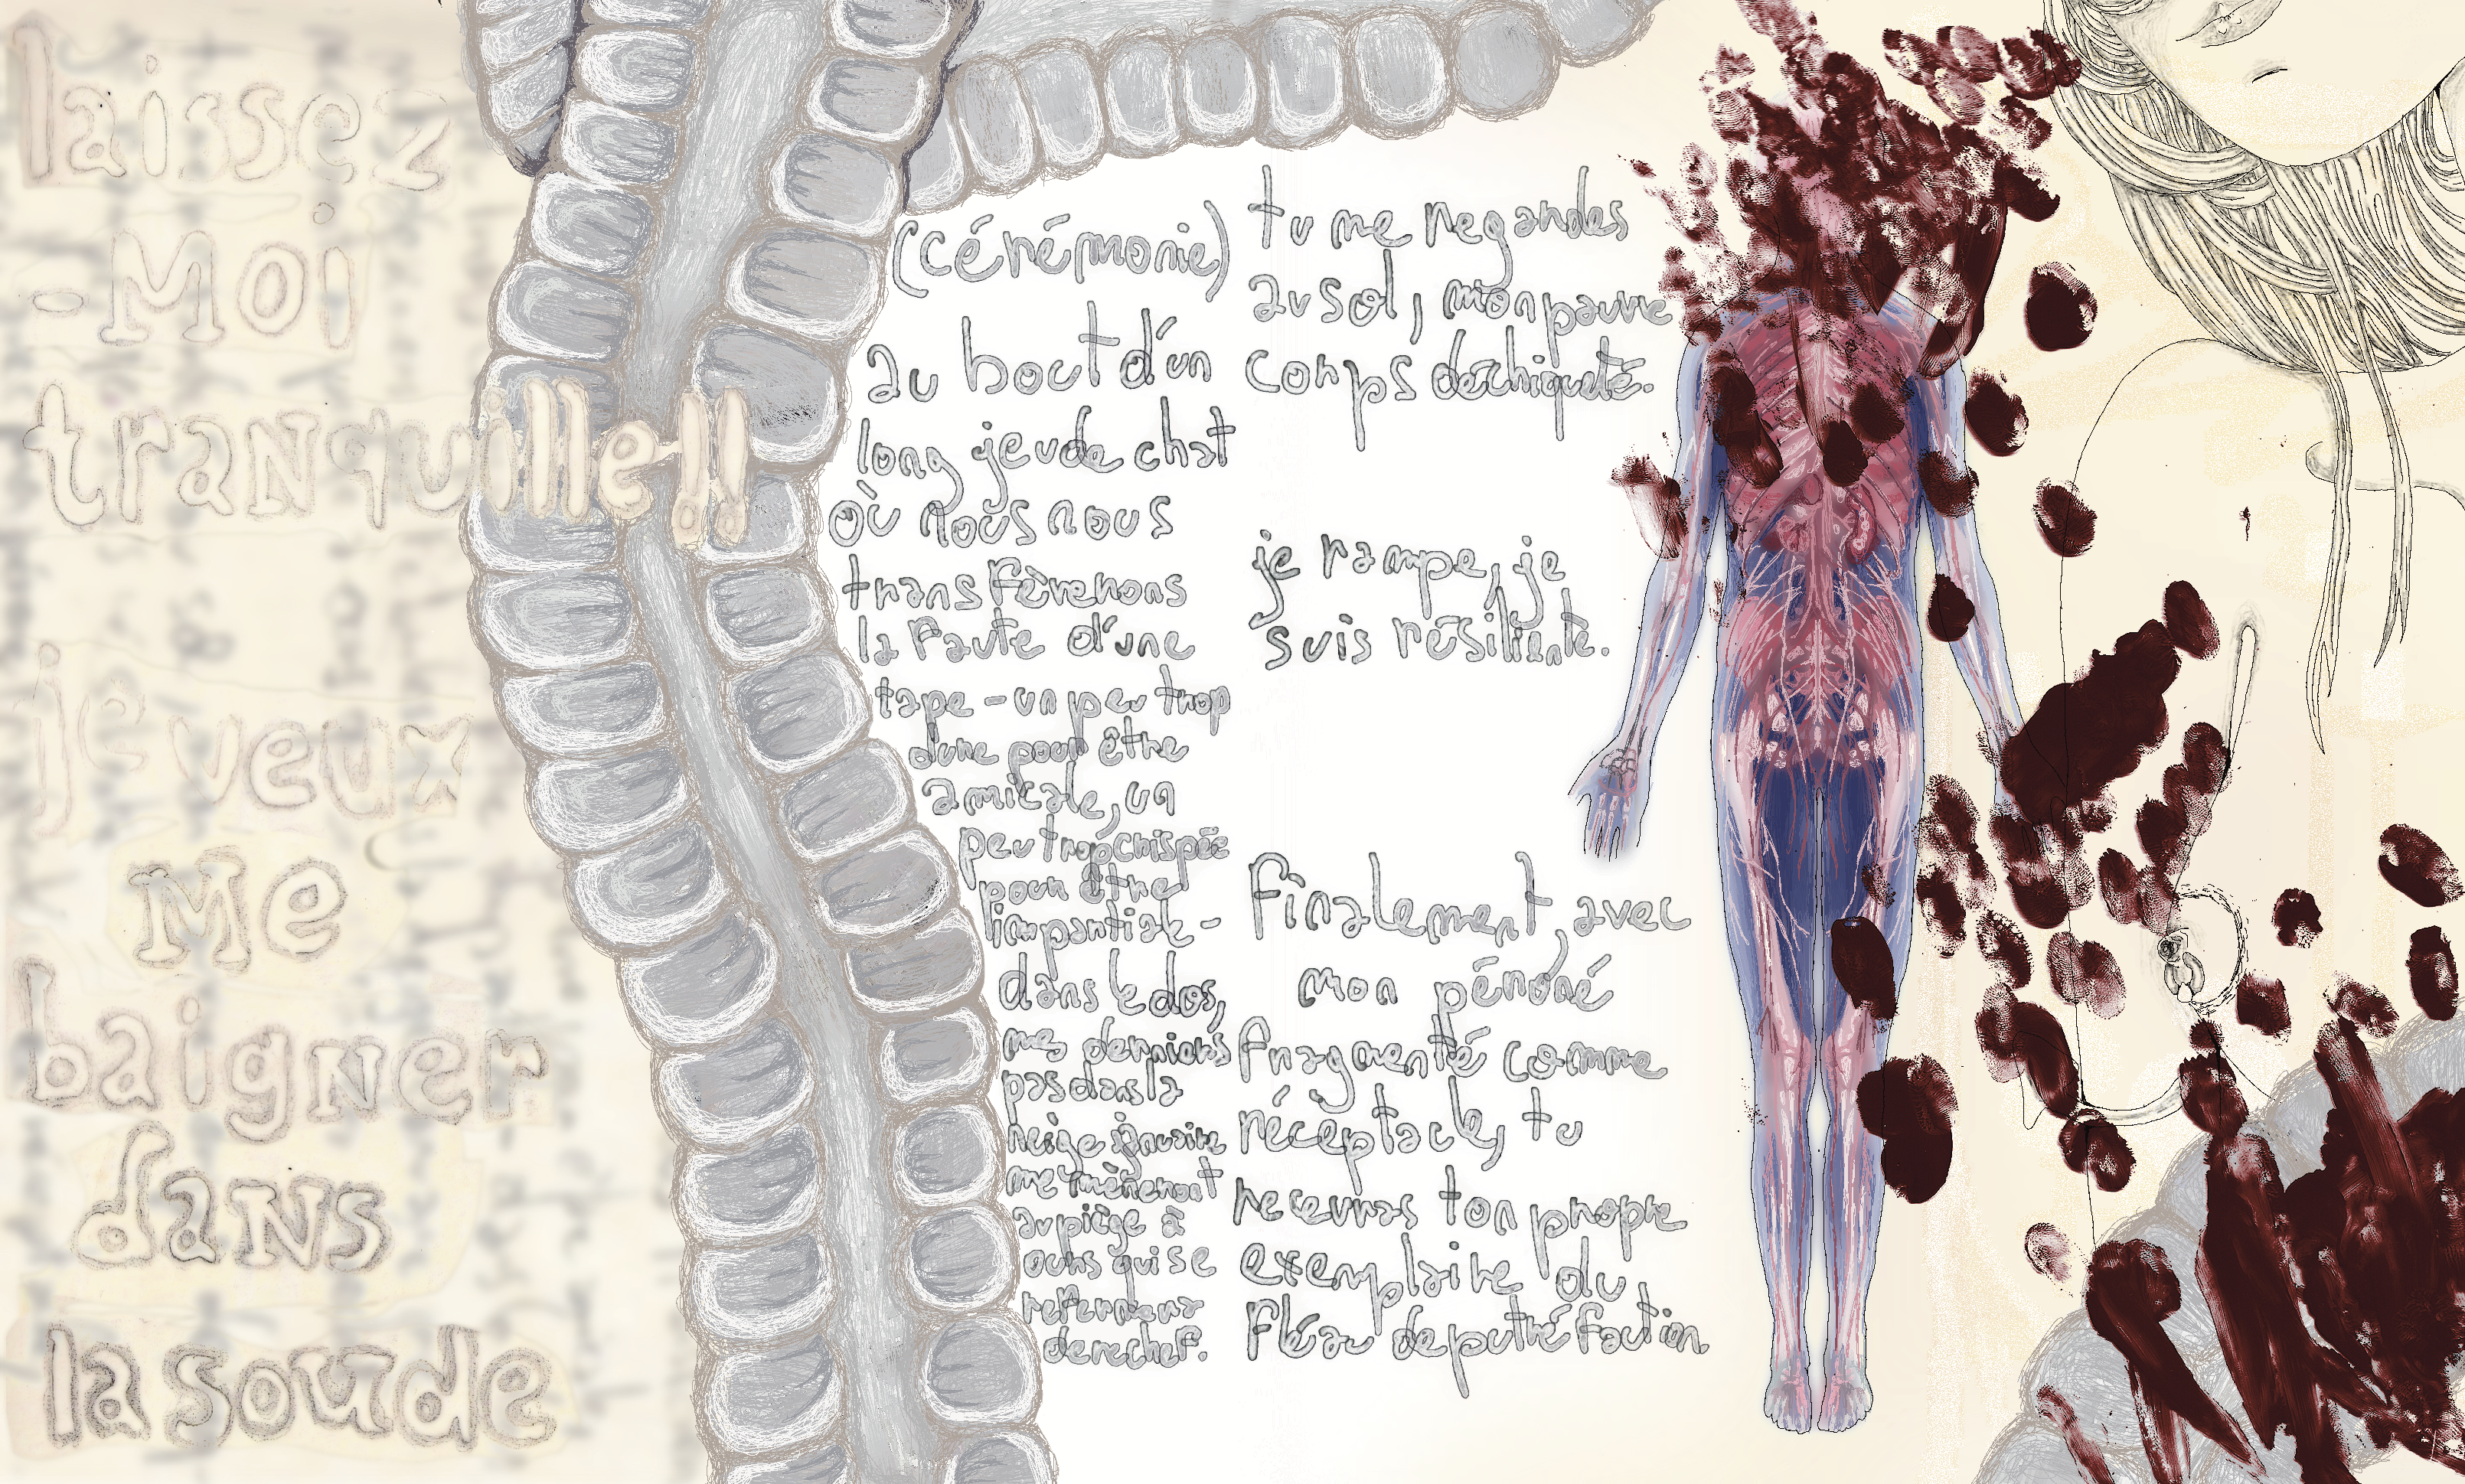 laissez
-Moi
tranquille!!
je veux
Me
baigner
dans
la soude
(cérémonie)
au bout d'un
long jeu de chat
où nous nous
transfèrerons
la faute d'une
tape - un peu trop
dure pour être
amicale, un
peu trop crispée
pour être
impartiale -
dans le dos,
mes derniers
pas dans la
neige
me mèneront
au piège à
ours qui se
refermera
derechef.
tu me regardes
au sol, mon pauvre
corps déchiqueté.
je rampe, je
suis résiliente.
Finalement, avec
mon péroné
fragmenté comme
réceptacle, tu
recevras ton propre
exemplaire du
fléau de putréfaction.